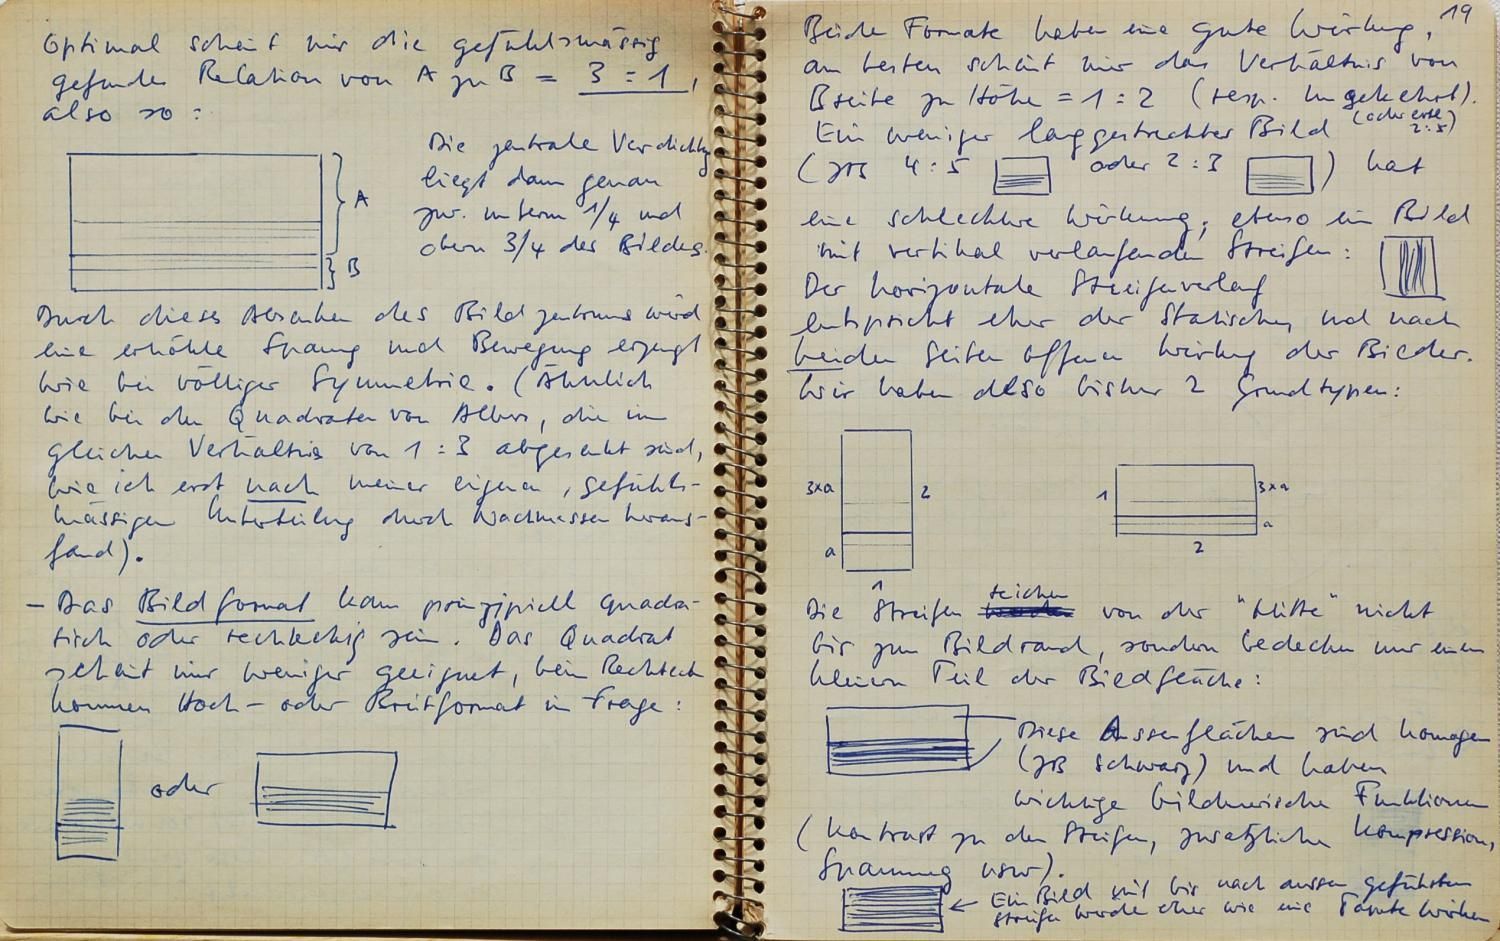 Optimal scheint mir die gefühlsmässig
gefundene Relation von A zu B = 3 : 1,
also so :
Die zentrale Verdichtung
liegt dann genau
zw. unterm 1/4 und
oberm 3/4 des Bildes.
A
B
Durch dieses Absenken des Bildzentrums wird
eine erhöhte Spannung und Bewegung erzeugt
wie bei völliger Symmetrie. (Ähnlich
wie bei den Quadraten von Albers, die im
gleichen Verhältnis von 1 : 3 abgesenkt sind,
wie ich erst nach meiner eigenen, gefühls-
mässigen Unterteilung durch Nachmessen heraus-
fand).
- Das Bildformat kann prinzipiell quadra-
tisch oder rechteckig sein. Das Quadrat
scheint mir weniger geeignet, beim Rechteck
kommen Hoch- oder Breitformat in Frage :
oder
19
Beide Formate haben eine gute Wirkung,
am besten scheint mir das Verhältnis von
Breite zu Höhe = 1 : 2 (resp. umgekehrt).
(oder erse 2:5)
Ein weniger langgestreckter Bild
(zB 4 : 5 oder 2 : 3 ) hat
eine schlechtere Wirkung, ebenso ein Bild
mit vertikal verlaufenden Streifen :
Der horizontale Streifenverlauf
entspricht eher der Statischen, und nach
beiden Seiten offenen Wirkung der Bilder.
Wir haben also bisher 2 Grundtypen :
3xa
2
a
1
1
3xa
a
2
Die Streifen reichen von der "Mitte" nicht
bis zum Bildrand, sondern bedecken nur einen
kleinen Teil der Bildfläche :
Diese Aussenflächen sind homogen
(zB schwarz) und haben
wichtige bildnerische Funktionen
(Kontrast zu den Streifen, zusätzliche Kompression,
Spannung usw).
← Ein Bild mit bis nach aussen geführten
Streifen würde eher wie eine Tapete wirken